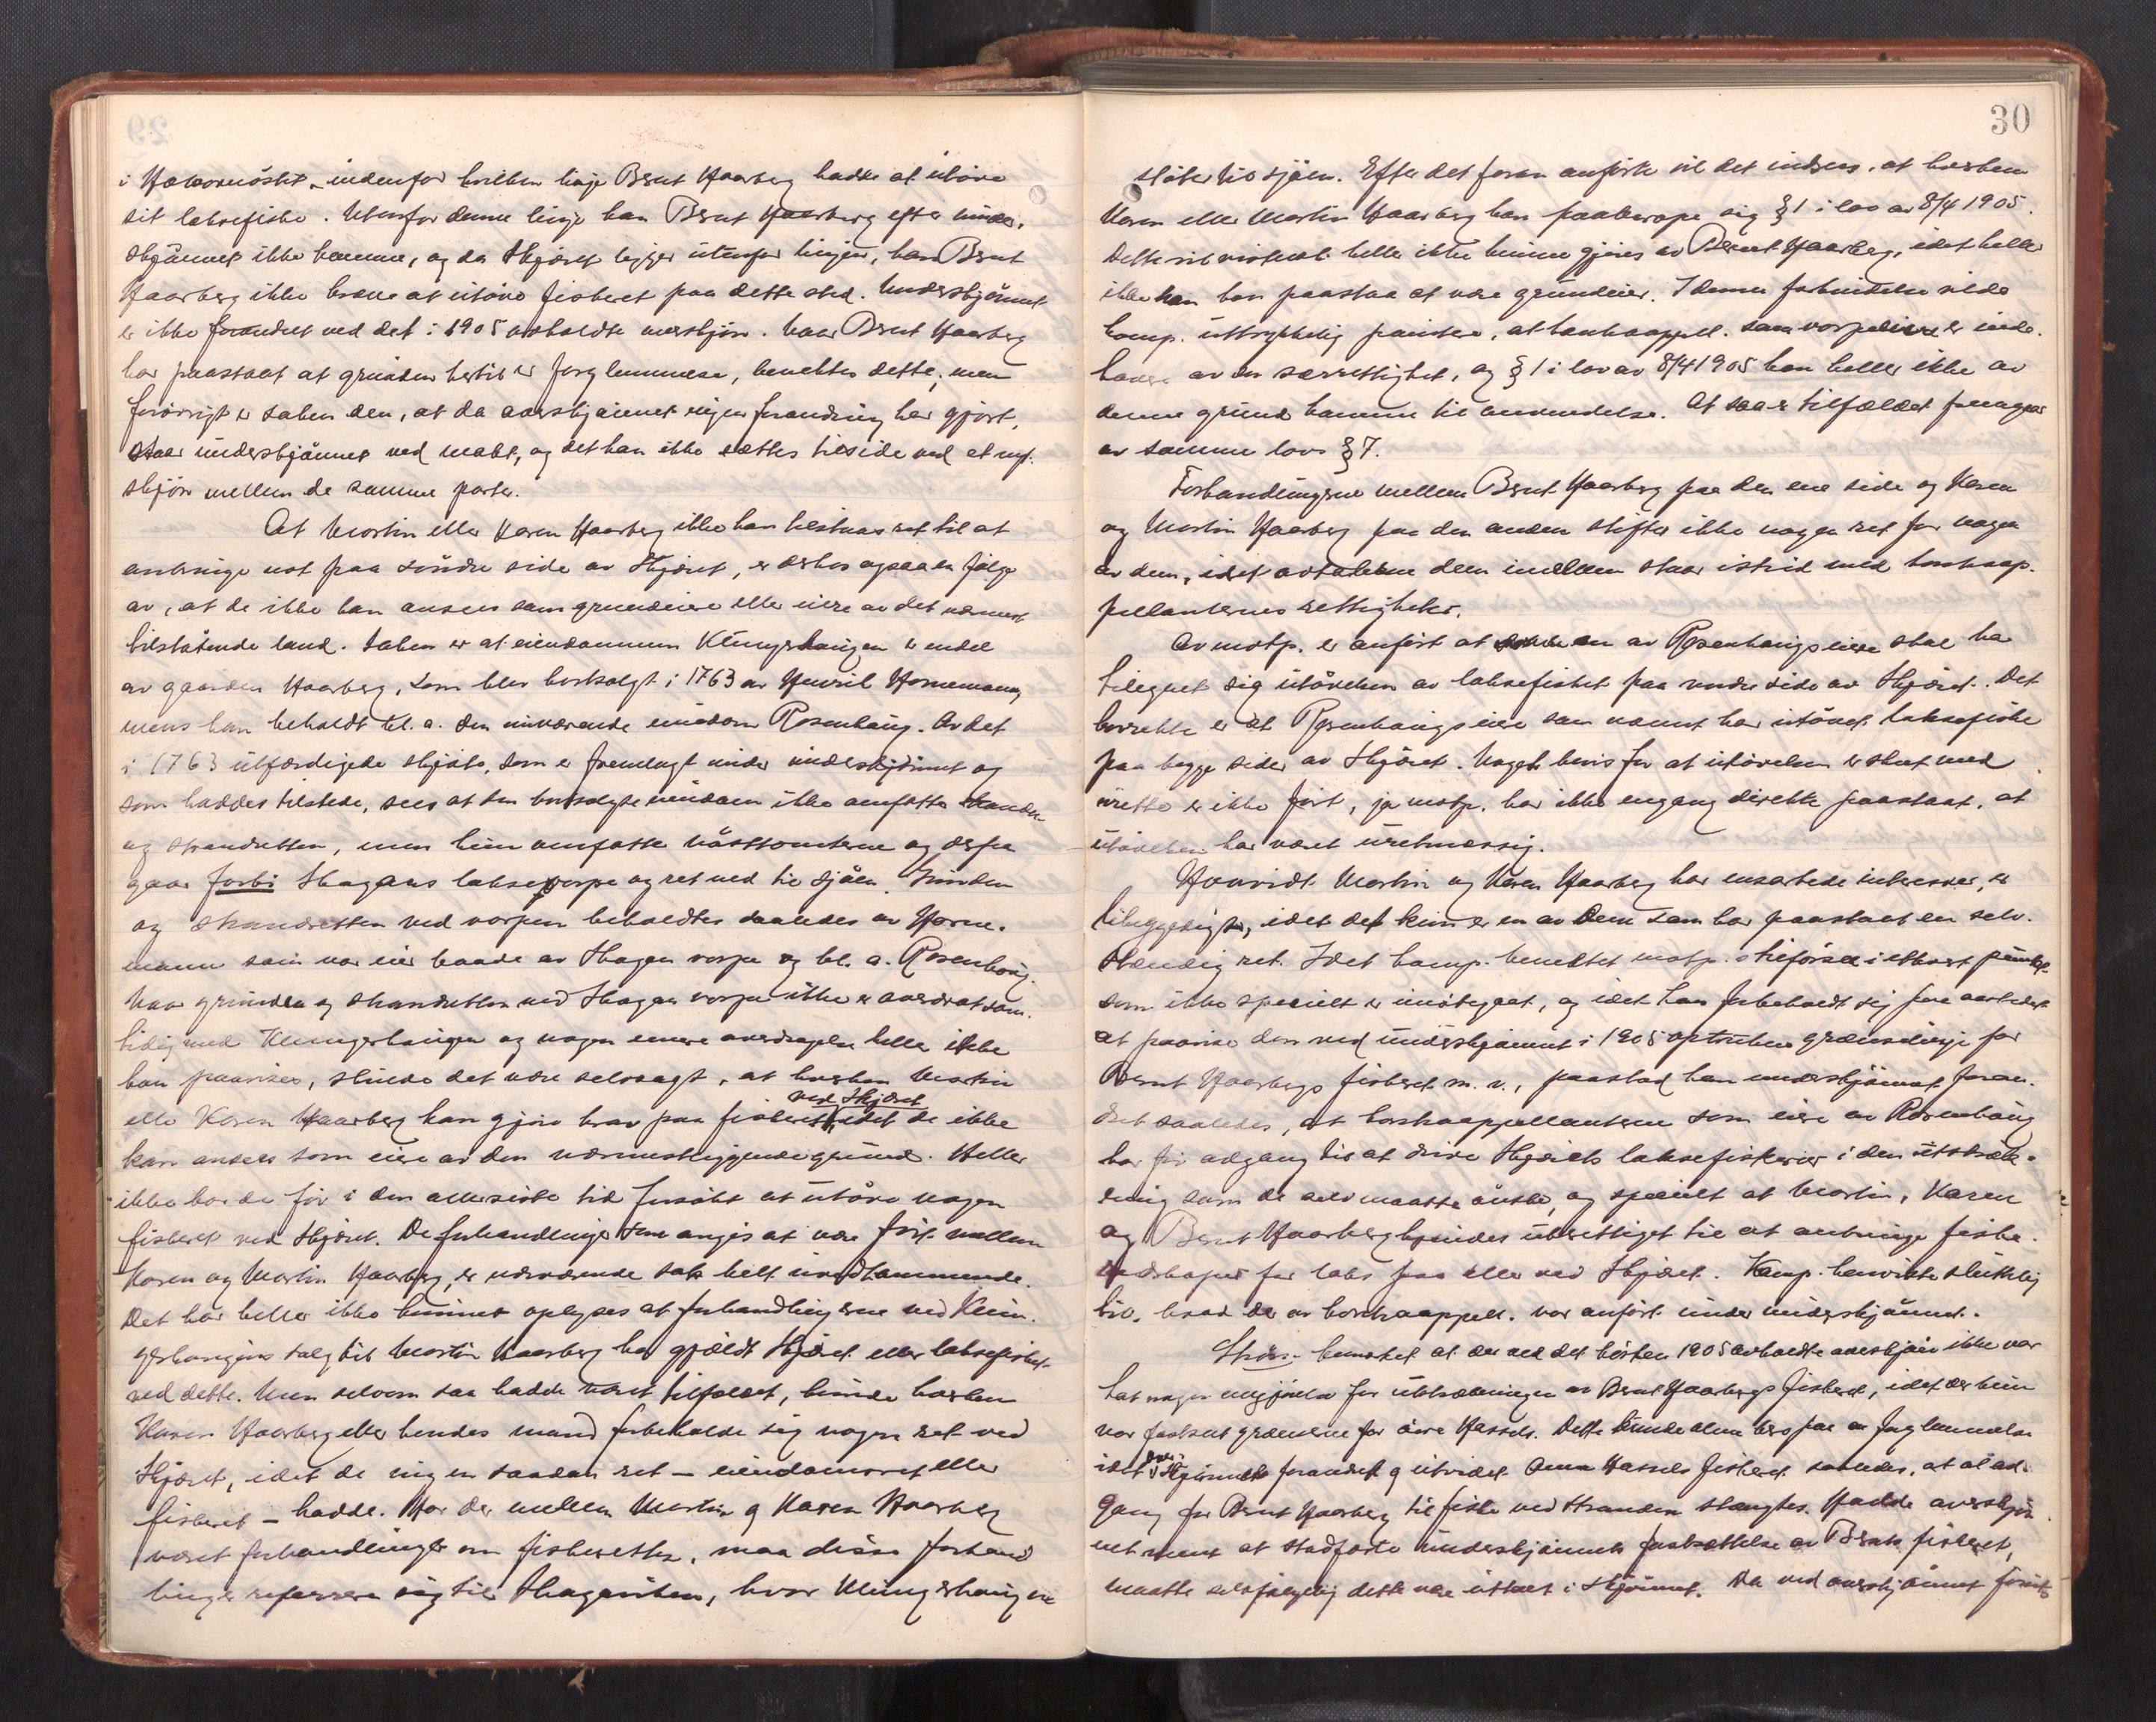 i Hævornöstet – indenfor hvilken linje Bernt Haarberg hadde at utöve
sit laksefiske. Utenfor denne linje kan Bernt Haarberg efter under-
skjönnet ikke komme, og da Skjæret ligger utenfor linjen, kan Bernt
Haarberg ikke kræve at utöve fiskeret paa dette sted. Underskjönnet
er ikke forandret ved det i 1905 avholdte overskjön. Naar Bernt Haarberg
har paastaat at grunden hertil er forglemmelse, benektes dette, men
forövrigt er saken den, at da overskjönnet ingen forandring har gjort,
staar underskjönnet ved makt, og det kan ikke sættes tilside ved et nyt
skjön mellem de samme parter.
At Martin eller Karen Haarberg ikke kan tilstaaes ret til at
anbringe not paa söndre side av Skjæret, er derhos ogsaa en fölge
av, at de ikke kan ansees som grundeiere eller eiere av det nærmest
tilstötende land. Saken er at eiendommen Klungerhaugen er endel
av gaarden Haarberg, som blev bortsolgt i 1763 av Henrik Hornemann,
mens han beholdt bl. a. den nuværende eiendom Rosenhaug. Av det
i 1763 utfærdigede skjöte, som er fremlagt under underskjönnet og
som haddes tilstede, sees at den bortsolgte eiendom ikke omfatte stranden
og strandretten, men kun omfatte nösttomterne og derfra
gaar forbi Skagens laksevorpe og ret ned til sjöen. Grunden
og strandretten ved vorpen beholdtes saaledes av Horne-
mann som var eier baade av Skagen vorpe og bl. a. Rosenhaug.
Naar grunden og strandretten ved Skagen vorpe ikke er avendrat sam-
tidig med Klungerhaugen og nogen senere overdragelse heller ikke
kan paavises, skulde det være selvsagt, at hverken Martin
eller Karen Haarberg kan gjöre krav paa fiskeret ved Skjæret, idet de ikke
kan ansees som eiere av den nærmestliggende grund. Heller
ikke har de för i den allersidste tid forsökt at utöve nogen
fiskeret ved Skjæret. De forhandlinger som angis at være fört mellem
Karen og Martin Haarberg, er nærværende sak helt uvedkommende.
Det har heller ikke kunnet oplyses at forhandlingerne ved Klun-
gerhaugens salg til Martin Haarberg har gjældt Skjæret eller laksefisket
ved dette. Men selvom saa hadde været tilfældet, kunde hverken
Karen Haarberg eller hendes mand forbeholde sig nogen ret ved
Skjæret, idet de ingen saadan ret – eiendomsret eller
fiskeret – hadde. Har der mellem Martin og Karen Haarberg
været forhandlinger om fiskeretten, maa disse forhand-
linger referere sig til Skagesiten, hvor Klungerhaugen
30
stöter til sjöen. Efter det foran anförte vil det indsees, at hverken
Karen eller Martin Haarberg kan paaberope sig § 1 i lov av 8/4 1905.
Dette vil visstnok heller ikke kunne gjöres av Bernt Haarberg, idet heller
ikke han kan paastaa at være grundeier. I denne forbindelse vilde
komp. uttrykkelig pointere, at kontraappell. som vorpeeiere er inde-
havere av en særrettighet, og § 1 i lov av 8/4 1905 kan heller ikke av
denne grund komme til anvendelse. At saa er tilfældet fremgaar
av samme lovs § 7.
Forhandlingerne mellem Bernt Haarberg paa den ene side og Karen
og Martin Haarberg paa den anden stifter ikke nogen ret for nogen
av dem, idet avtalerne dem imellem staar istrid med kontraap-
pellanternes rettigheter.
Av motp. er anfört at en av Rosenhaugs eiere skal ha
tilegnet sig utövelsen av laksefisket paa nordre side av Skjæret. Det
korrekte er at Rosenhaugs eiere som nævnt har utövet laksefiske
paa begge sider av Skjæret. Noget bevis for at utövelsen er sket med
urette er ikke fört, ja motp. har ikke engang direkte paastaat, at
utövelsen har været uretmæssig.
Hvorvidt Martin og Karen Haarberg har ensartede interesser, er
likegyldigt, idet det kun er en av dem som har paastaat en selv-
stændig ret. Idet komp. benektet motp.s tilförsel i ethvert punkt
som ikke specielt er imötegaat, og idet han forbeholdt sig paa aastedet
at paavise den ved underskjönnet i 1905 optrukne grænselinje for
Bernt Haarbergs fiskeret m. v., paastod han underskjönnet foran-
dret saaledes, at kontraappellanterne som eiere av Rosenhaug
har fri adgang til at drive Skjærets laksefiskerier i den utstræk-
ning som de selv maatte önske, og specielt at Martin, Karen
og Bernt Haarberg kjendes uberettiget til at anbringe fiske-
redskaper for laks paa eller ved Skjæret. Komp. henviste slutelig
til, hvad der av kontraappell. var anfört under underskjönnet.
Ström bemerket at der ved det hösten 1905 avholdte overskjön ikke var
tat nogen avgjörelse for utstrækningen av Bernt Haarbergs fiskeret, idet der kun
var fastsat grænserne for övre Hassels. Dette kunde alene bero paa en forglemmelse
idet overskjönnet forandret og utvidet Anna Hassels fiskeret saaledes, at al ad-
gang for Bernt Haarberg til fiske ved stranden stængtes. Hadde overskjön-
net ment at stadfæste underskjönnets fastsættelse av Bernts fiskeret,
maatte selvfölgelig dette være uttalt i skjönnet. Da ved overskjönnet